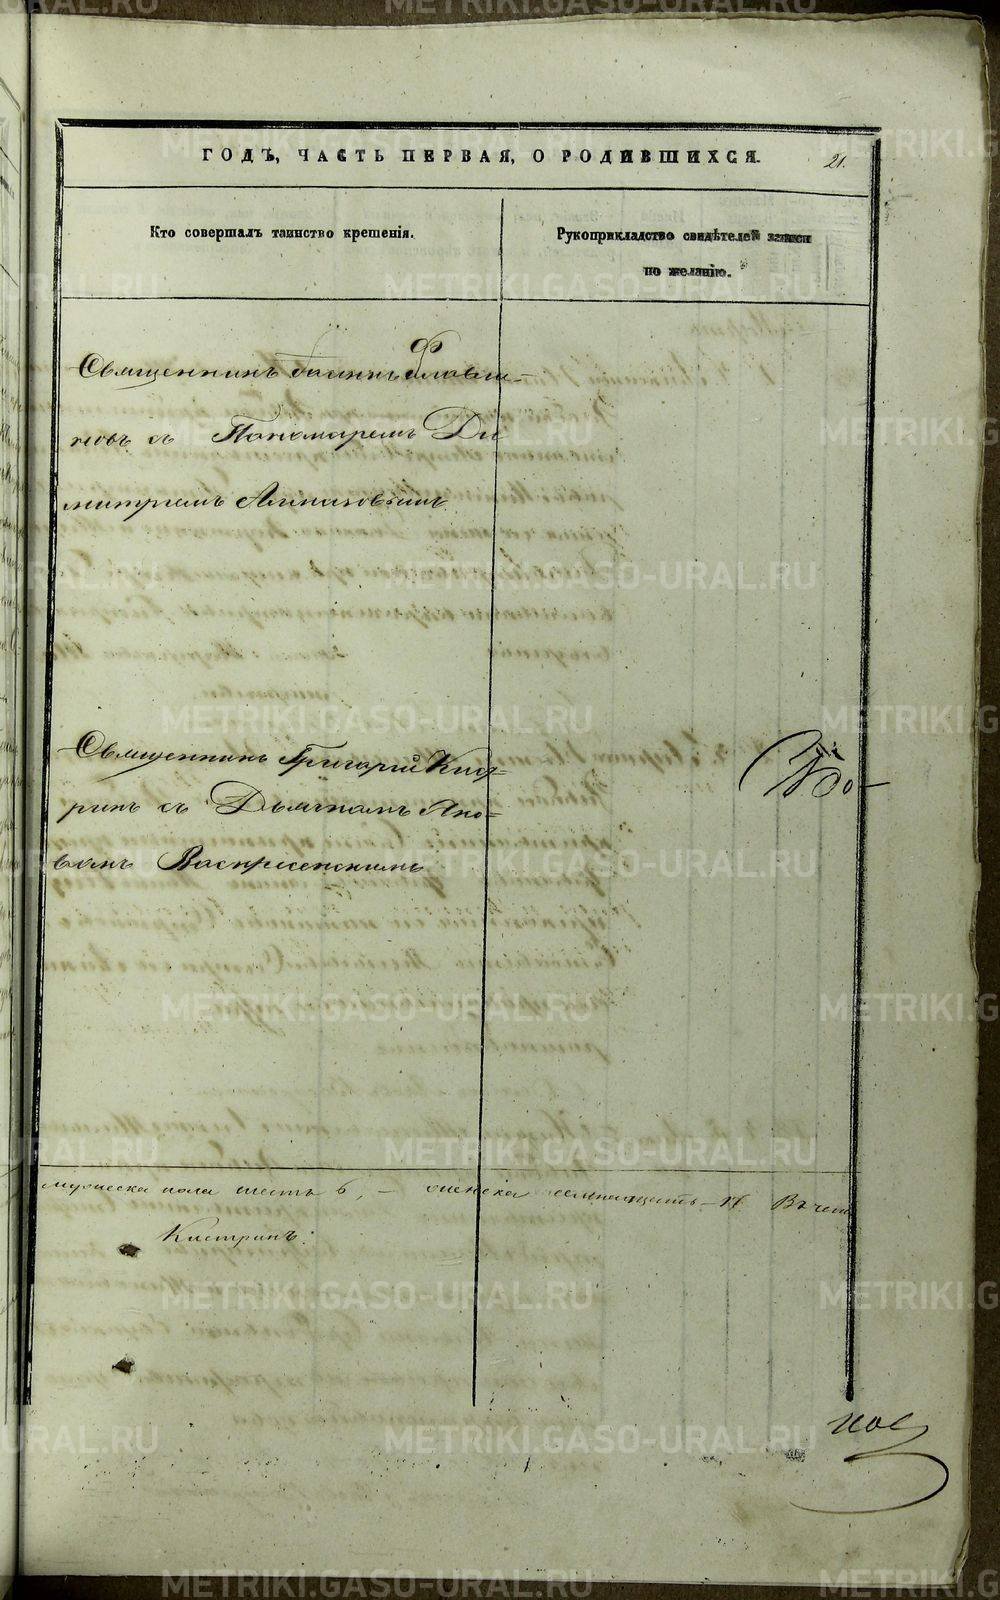 ГОДЪ, ЧАСТЬ ПЕРВАЯ, О РОДИВШИХСЯ.
21.
Кто совершалъ таинство крещенія.
Рукоприкладство свидѣтелей записи
по желанію.
Священникъ Іоаннъ Флави-
новъ съ Пономаремъ Ди
митріемъ
Священникъ Григорій Кист-
ринъ съ Дьячкомъ Яко-
вомъ Воскресенскимъ
мужеска пола шесть 6, – женска семнадцать – 17. Всѣхъ
Кистринъ.
METRIKI.GASO-URAL.RU